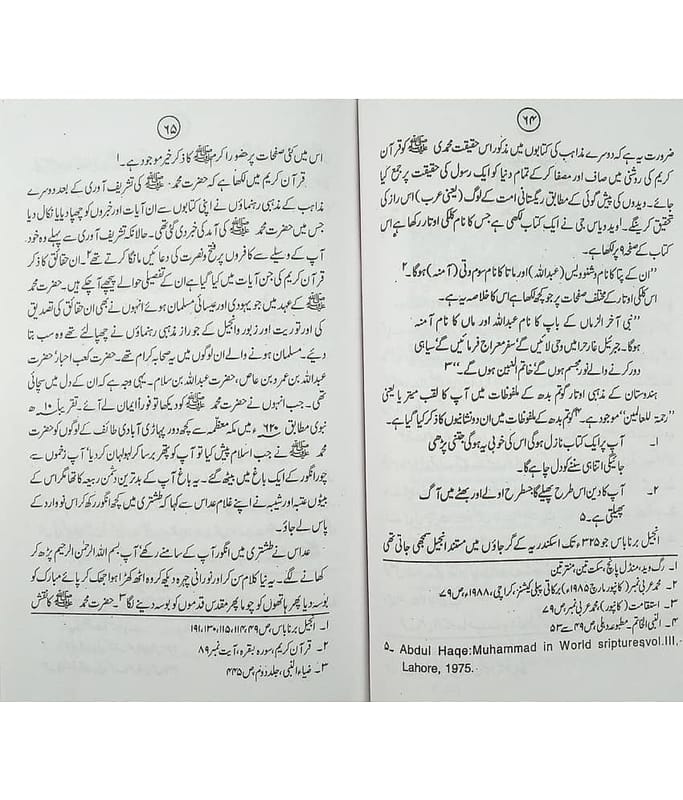 ۶۴
ضرورت یہ ہے کہ دوسرے مذاہب کی کتابوں میں مذکور اس حقیقت محمدی ﷺ کو قرآن
کریم کی روشنی میں صاف اور مصفا کر کے تمام دنیا کو ایک رسول کی حقیقت پر جمع کیا
جائے۔ ویدوں کی پیش گوئی کے مطابق ریگستانی امت کے لوگ (یعنی عرب) اس راز کی
تحقیق کرینگے۔ اوید ویاس جی نے ایک کتاب لکھی ہے جس کا نام کلکی اوتار رکھا ہے اس
کتاب کے صفحہ ۹ پر لکھا ہے۔
"ان کے پتا کا نام وشنو ویس (عبداللہ) اور ماتا کا نام سوم وتی (آمنہ) ہوگا۔ ۲
اس کلکی اوتار کے مختلف صفحات پر جو کچھ لکھا ہے اس کا خلاصہ یہ ہے۔
"نبی آخر الزماں کے باپ کا نام عبداللہ اور ماں کا نام آمنہ
ہوگا۔ جبرئیل غار حرا میں وحی لائیں گے سفر معراج فرمائیں گے سیاہی
دور کرنے والے نور مجسم ہوں گے خاتم النبین ہوں گے۔" ۳
ہندوستان کے مذہبی اوتار گوتم بدھ کے ملفوظات میں آپ کا لقب میتر یا یعنی
"رحمۃ للعالمین" موجود ہے۔ ۴ گوتم بدھ کے ملفوظات میں ان دو نشانیوں کا ذکر کیا گیا ہے۔
۱۔ آپ پر ایک کتاب نازل ہوگی اس کی خوبی یہ ہوگی جتنی پڑھی
جائیگی اتنا ہی سننے کو دل چاہے گا۔
۲۔ آپ کا دین اس طرح پھیلے گا جسطرح اولے اور بھٹے میں آگ
پھیلتی ہے۔ ۵
انجیل برناباس جو ۳۲۵ء تک اسکندریہ کے گرجاؤں میں مستند انجیل سمجھی جاتی تھی
۱۔ رگ وید، منڈل پانچ، سکت تین، منتر تین
۲۔ محمد عربی نمبر (کانپور مارچ ۱۹۸۵ء) برکاتی پبلی کیشنز، کراچی، ۱۹۸۸ء، ص ۷۹
۳۔ استقامت (کانپور) محمد عربی نمبر ص ۷۹
۴۔ النبی الخاتم۔ مطبوعہ دہلی، ص ۴۹ سے ۵۳
۵۔ Abdul Haqe:Muhammad in World sriptures,vol.III,
Lahore, 1975.
۶۵
اس میں کئی صفحات پر حضور اکرم ﷺ کا ذکر خیر موجود ہے۔ ۱
قرآن کریم میں لکھا ہے کہ حضرت محمد ﷺ کی تشریف آوری کے بعد دوسرے
مذاہب کے مذہبی رہنماؤں نے اپنی کتابوں سے ان آیات اور خبروں کو چھپا دیا یا نکال دیا
جس میں حضرت محمد ﷺ کی آمد کی خبر دی گئی تھی۔ حالانکہ تشریف آوری سے پہلے وہ خود
آپ کے وسیلے سے کافروں پر فتح و نصرت کی دعائیں مانگا کرتے تھے ۲ ان حقائق کا ذکر
قرآن کریم کی جن آیات میں کیا گیا ہے ان کے تفصیلی حوالے پیچھے آچکے ہیں۔ حضرت محمد
ﷺ کے عہد میں جو یہودی اور عیسائی مسلمان ہوئے انہوں نے بھی ان حقائق کی تصدیق
کی اور توریت اور زبور و انجیل کے جو راز مذہبی رہنماؤں نے چھپا لئے تھے وہ سب بتا
دیئے۔ مسلمان ہونے والے ان لوگوں میں یہ صحابہ کرام تھے۔ حضرت کعب احبار، حضرت
عبداللہ بن عمرو بن عاص، حضرت عبداللہ بن سلام۔ یہی وجہ ہے کہ ان کے دل میں سچائی
تھی۔ جب انہوں نے حضرت محمد ﷺ کو دیکھا تو فوراً ایمان لے آئے۔ تقریباً ۱۰ھ
نبوی مطابق ۶۲۰ء میں مکہ معظمہ سے کچھ دور پہاڑی آبادی طائف کے لوگوں کو حضرت
محمد ﷺ نے جب اسلام پیش کیا تو آپ کو پتھر برسا کر لہولہان کر دیا، آپ زخموں سے
چور انگور کے ایک باغ میں بیٹھ گئے۔ یہ باغ آپ کے بدترین دشمن ربیعہ کا تھا مگر اس کے
بیٹوں عتبہ اور شیبہ نے اپنے غلام عداس سے کہا کہ طشتری میں کچھ انگور رکھ کر اس نووارد کے
پاس لے جاؤ۔
عداس نے طشتری میں انگور آپ کے سامنے رکھے آپ بسم اللہ الرحمٰن الرحیم پڑھ کر
کھانے لگے۔ یہ نیا کلام سن کر اور نورانی چہرہ دیکھ کر وہ اٹھ کھڑا ہوا جھک کر پائے مبارک کو
بوسہ دیا پھر ہاتھوں کو چوما پھر مقدس قدموں کو بوسہ دینے لگا ۳۔ حضرت محمد ﷺ کا نقش
۱۔ انجیل برناباس، ص ۴۹، ۱۱۴، ۱۱۵، ۱۳۰، ۱۹۱
۲۔ قرآن کریم، سورہ بقرہ، آیت نمبر ۸۹
۳۔ ضیاء النبی، جلد دوم، ص ۴۴۵